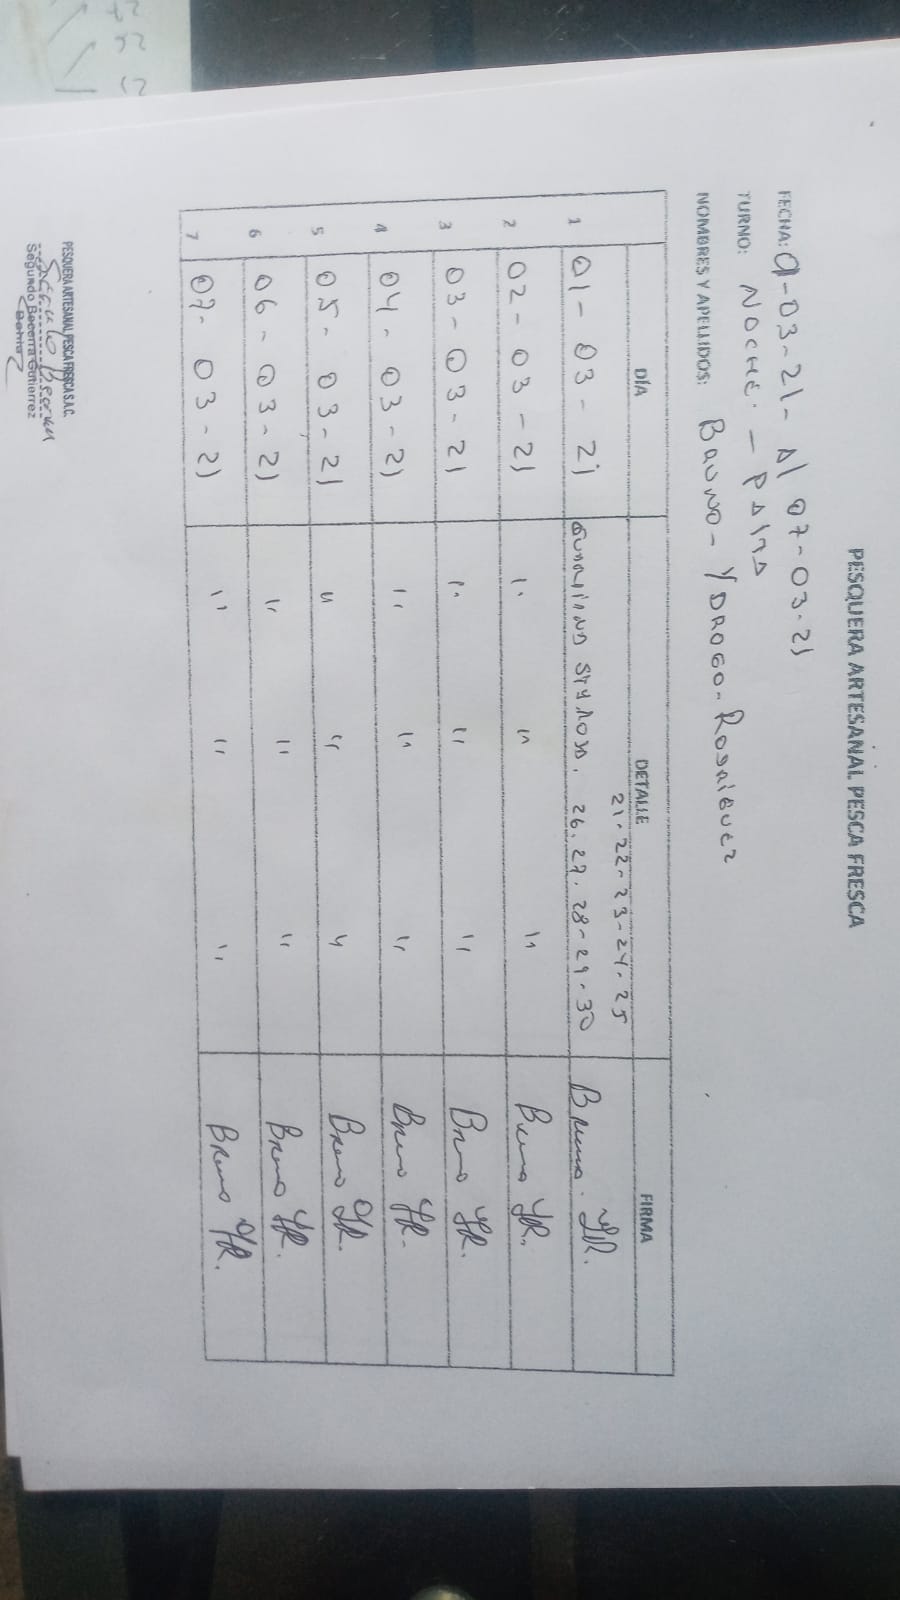 PESQUERA ARTESANAL PESCA FRESCA
FECHA: 01-03-21- Al 07-03-21
TURNO: NOCHE. - PAITA
NOMBRES Y APELLIDOS: BRUNO - YDROGO - RODRIGUEZ
DÍA DETALLE FIRMA
21-22-23-24-25
1 01-03-21 26-27-28-29-30 Bruno YR.
2 02-03-21 " " " Bruno YR.
3 03-03-21 " " " Bruno YR.
4 04-03-21 " " " Bruno YR.
5 05-03-21 " " " Bruno YR.
6 06-03-21 " " " Bruno YR.
7 07-03-21 " " " Bruno YR.
PESQUERA ARTESANAL PESCA FRESCA S.A.C.
Segundo Becerra Gutierrez